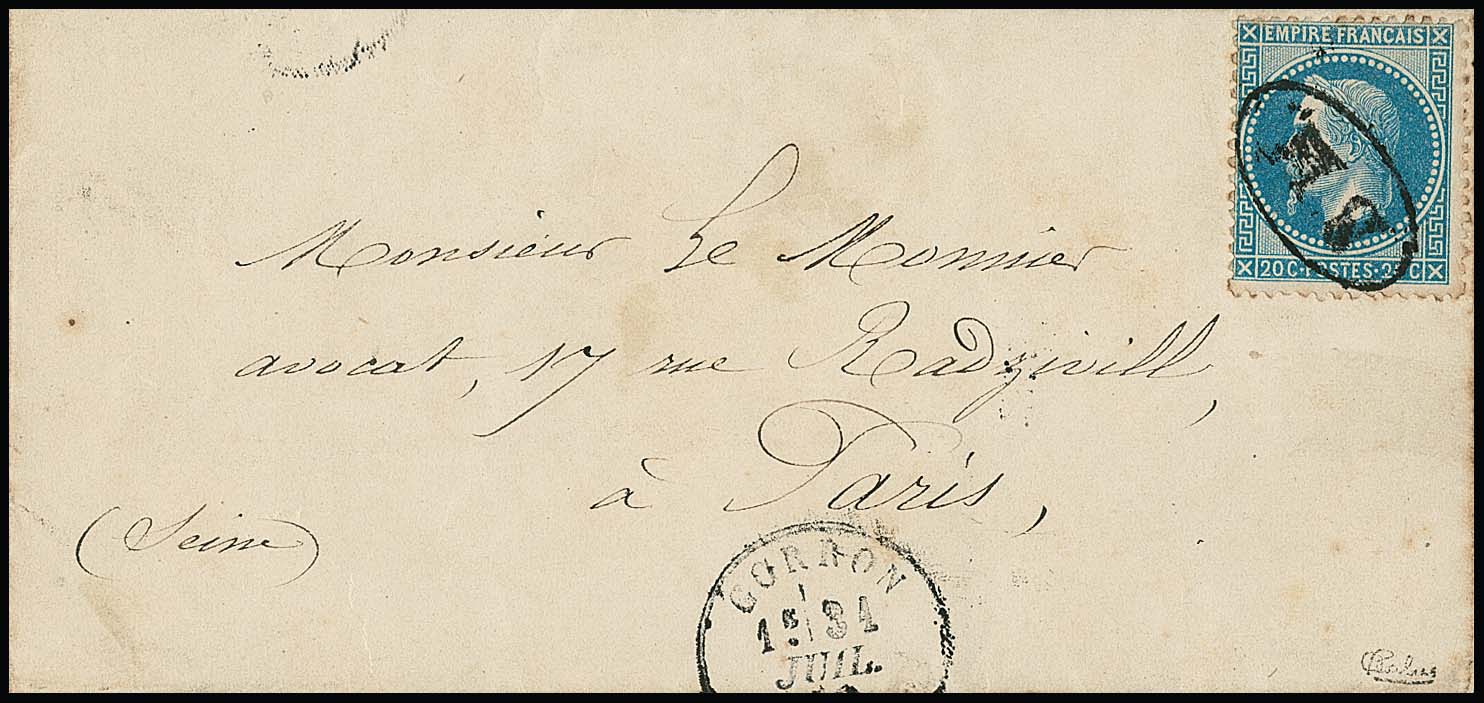 EMPIRE FRANCAIS
20 C · POSTES · 20 C
Monsieur Le Monnier
avocat, 17 rue Radziwill,
à Paris,
(Seine)
CORBON
1E 31
JUIL.